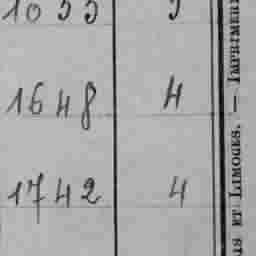 1648 4
1742 4
IS ET LIMOGES. — IMPRIMERI